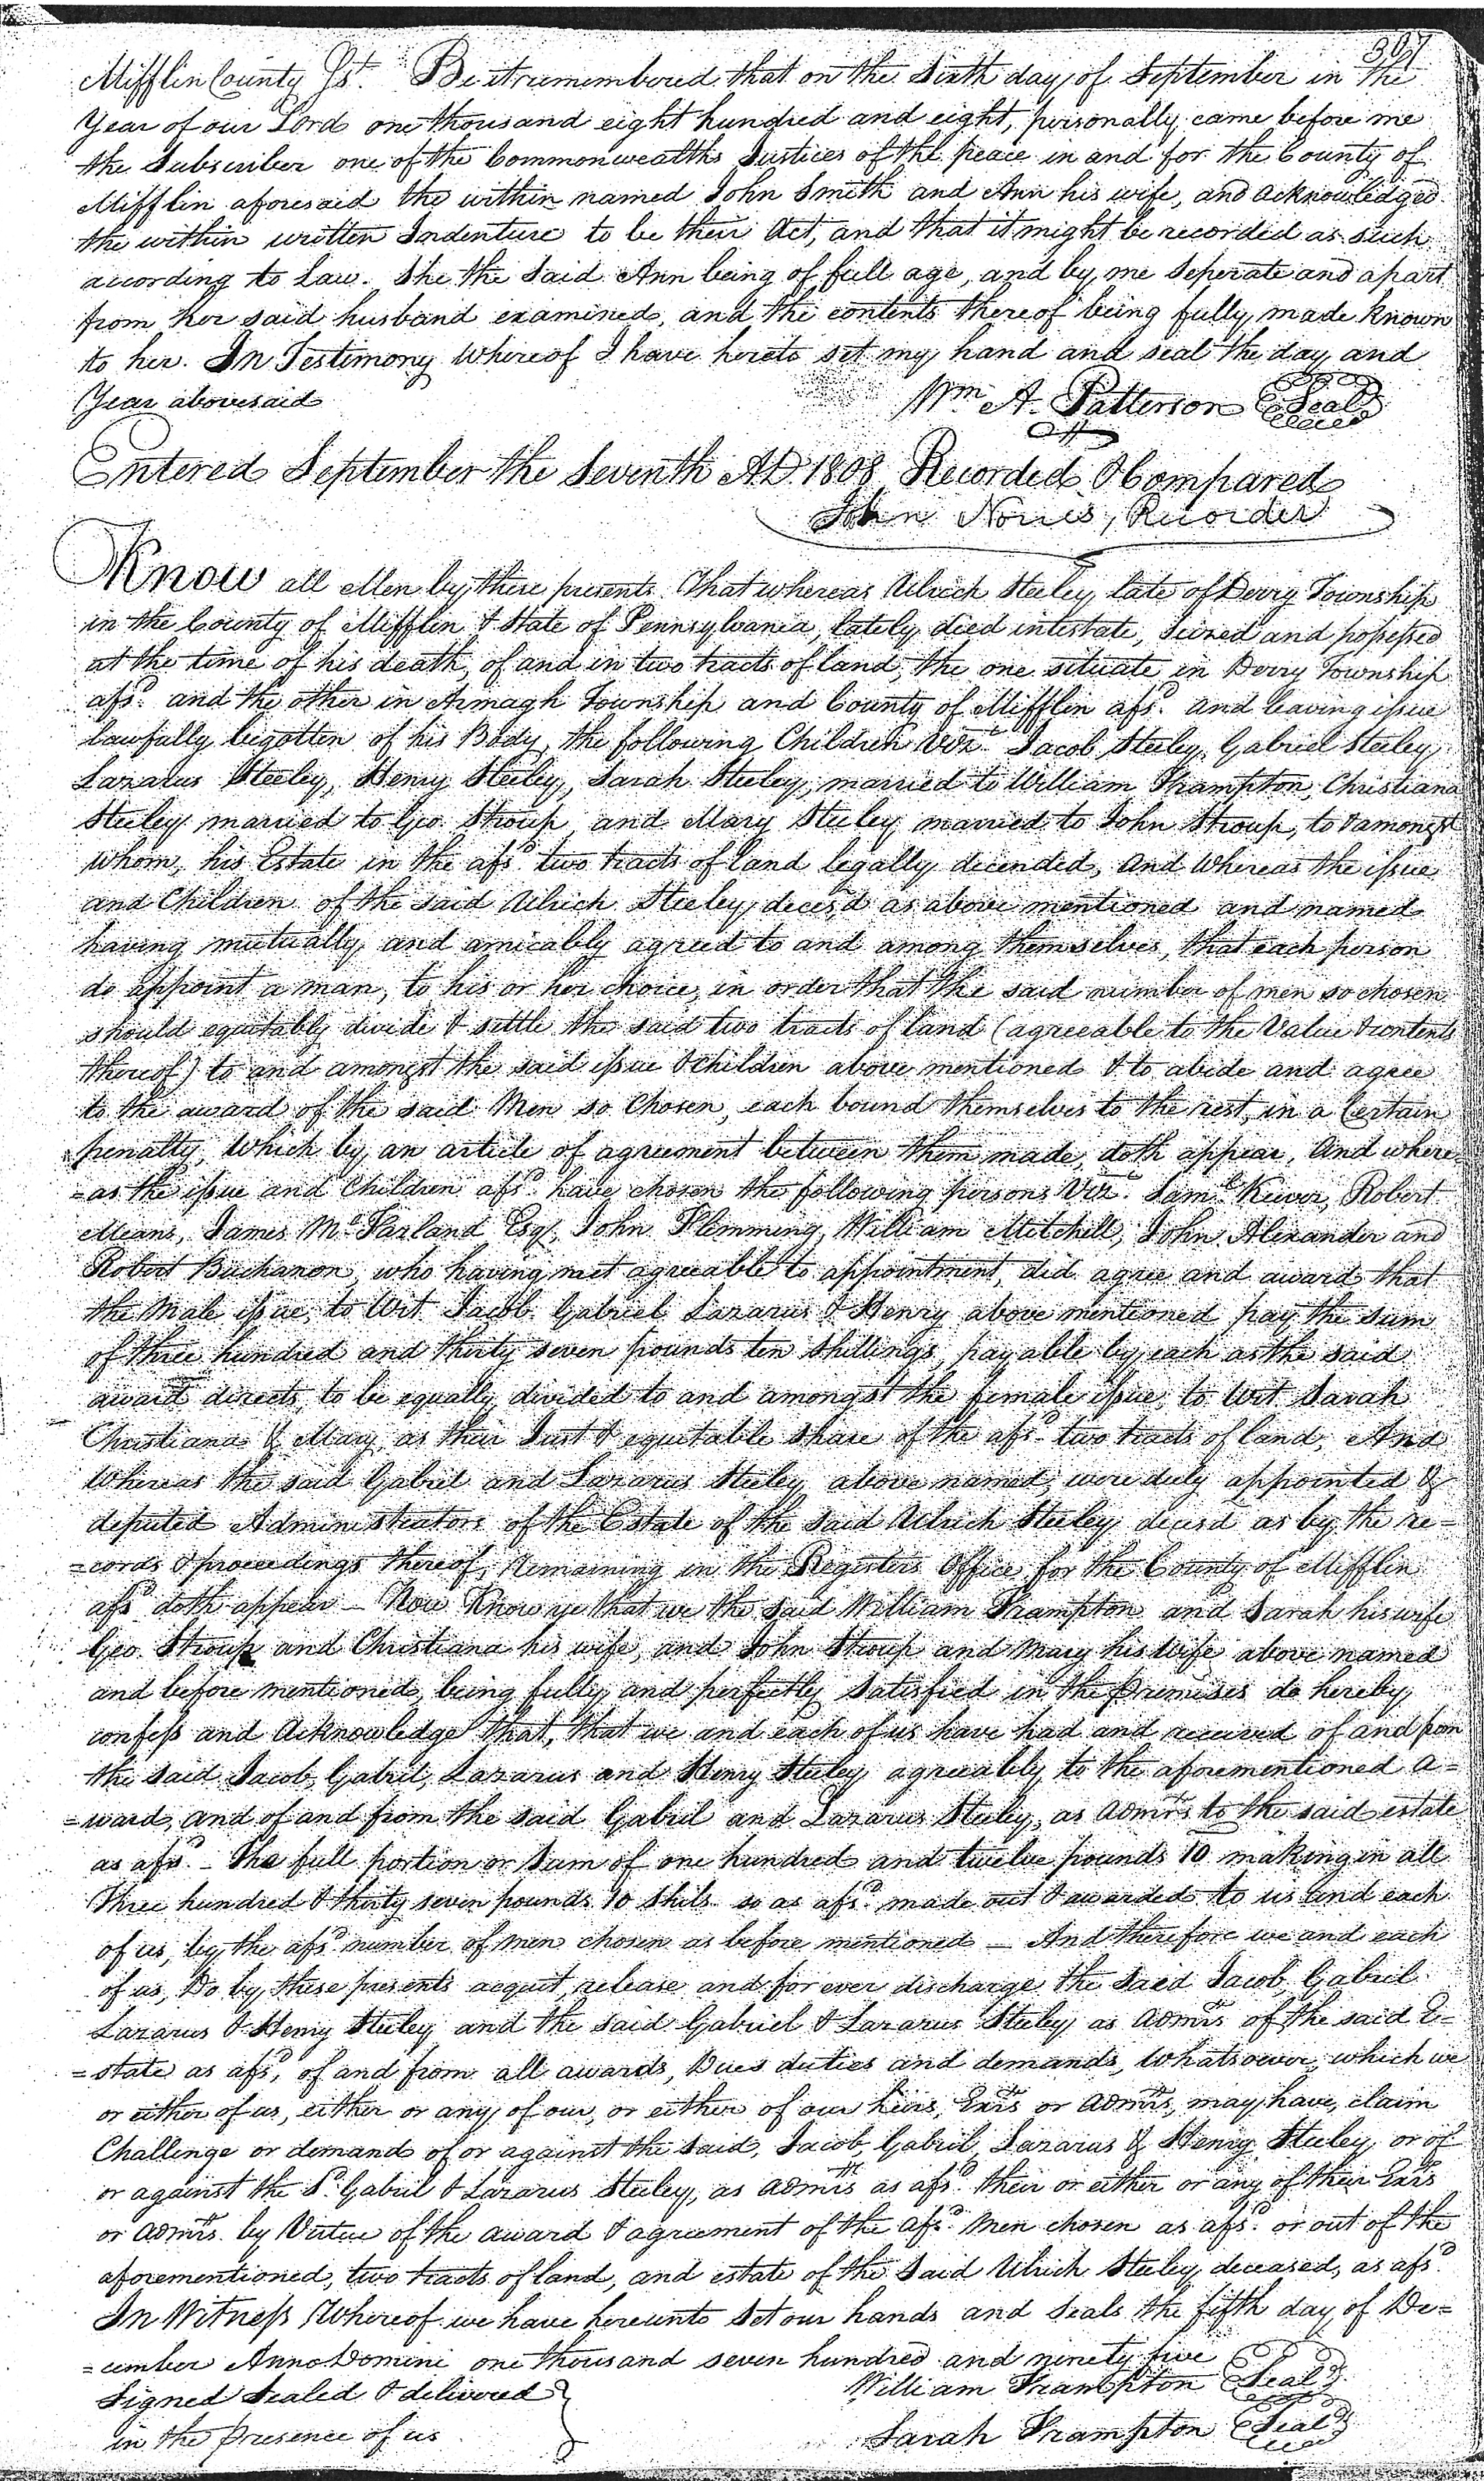 307
Mifflin County Ss. Be it remembered that on the Sixth day of September in the
Year of our Lord one thousand eight hundred and eight, personally came before me
the Subscriber one of the Commonwealths Justices of the peace in and for the County of
Mifflin aforesaid the within named John Smith and Ann his wife, and acknowledged
the within written Indenture to be their Act, and that it might be recorded as such
according to Law. She the Said Ann being of full age, and by me Seperate and apart
from her said husband examined, and the contents thereof being fully made known
to her. In Testimony Whereof I have hereto set my hand and seal the day and
Year abovesaid
Wm A. Patterson Seal
Entered September the Seventh AD 1808 Recorded & Compared
John Norris, Recorder
Know all Men by these presents That whereas Ulrich Steeley late of Derry Township
in the County of Mifflin & State of Pennsylvania, lately died intestate, Seized and possessed
at the time of his death, of and in two tracts of land, the one situate in Derry Township
afsd. and the other in Armagh Township and County of Mifflin afsd. and leaving issue
lawfully begotten of his Body, the following Children Vizt. Jacob Steeley, Gabriel Steeley
Lazarus Steeley, Henry Steeley, Sarah Steeley, married to William Frampton, Christiana
Steeley married to Geo. Stroup, and Mary Steeley married to John Stroup, to & amongst
whom, his Estate in the afsd. two tracts of land legally decended, And Whereas the issue
and Children of the said Ulrich Steeley, decesd as above mentioned and named
having mutually and amicably agreed to and among themselves, that each person
do appoint a man, to his or her choice, in order that the said number of men so chosen
should equitably divide & settle the said two tracts of land (agreeable to the Value & contents
thereof) to and amongst the said issue & children above mentioned & to abide and agree
to the award of the said Men so Chosen, each bound themselves to the rest, in a Certain
penalty, Which by an article of agreement between them made, doth appear, And where=
=as the issue and Children afsd. have chosen the following persons Vizt. Saml. Kever, Robert
Means, James McFarland Esqr, John Flemming, William Mitchell, John Alexander and
Robert Buchanon, who having met agreeable to appointment, did agree and award that
the Male issue, to Wit Jacob Gabriel Lazarus & Henry above mentioned pay the Sum
of three hundred and thirty seven pounds ten Shillings, payable by each as the said
award directs, to be equally divided to and amongst the female issue, to Wit Sarah
Christiana & Mary, as their Just & equitable Share of the afsd. two tracts of land, And
Whereas the said Gabriel and Lazarus Steeley above named, were duly appointed &
deputed Administrators of the Estate of the Said Ulrich Steeley decesd as by the re=
=cords & proceedings thereof, Remaining in the Registers Office for the County of Mifflin
afsd doth appear — Now Know ye that we the said William Frampton and Sarah his wife
Geo. Stroup and Christiana his wife, and John Stroup and Mary his Wife above named
and before mentioned, being fully and perfectly Satisfied in the premises do hereby
confess and Acknowledge that, that we and each of us have had and received of and from
the said Jacob, Gabriel, Lazarus and Henry Steeley agreeably to the aforementioned a=
=ward, and of and from the said Gabriel and Lazarus Steeley, as Admrs to the said estate
as afsd. — the full portion or Sum of one hundred and twelve pounds 10 making in all
Three hundred & thirty seven pounds 10 Shils so as afsd. made out & awarded to us and each
of us, by the afsd. number of men chosen as before mentioned — And therefore we and each
of us, Do by these presents acquit, release and for ever discharge the Said Jacob, Gabriel
Lazarus & Henry Steeley and the said Gabriel & Lazarus Steeley as Admrs of the said E=
=state as afsd, of and from all awards, Dues duties and demands, Whatsoever, which we
or either of us, either or any of our, or either of our heirs, Exrs or Admrs, may have, claim
Challenge or demand of or against the said, Jacob, Gabriel, Lazarus & Henry Steeley, or of
or against the Sd. Gabriel & Lazarus Steeley, as Admrs as afsd. their or either or any of their Exrs
or Admrs. by Virtue of the award & agreement of the afsd. Men chosen as afsd. or out of the
aforementioned, two tracts of land, and estate of the Said Ulrich Steeley, deceased, as afsd.
In Witness Whereof we have hereunto Set our hands and Seals the fifth day of De=
=cember Anno Domini one thousand seven hundred and ninety five
Signed Sealed & delivered
William Frampton Seal
in the presence of us
Sarah Frampton Seal